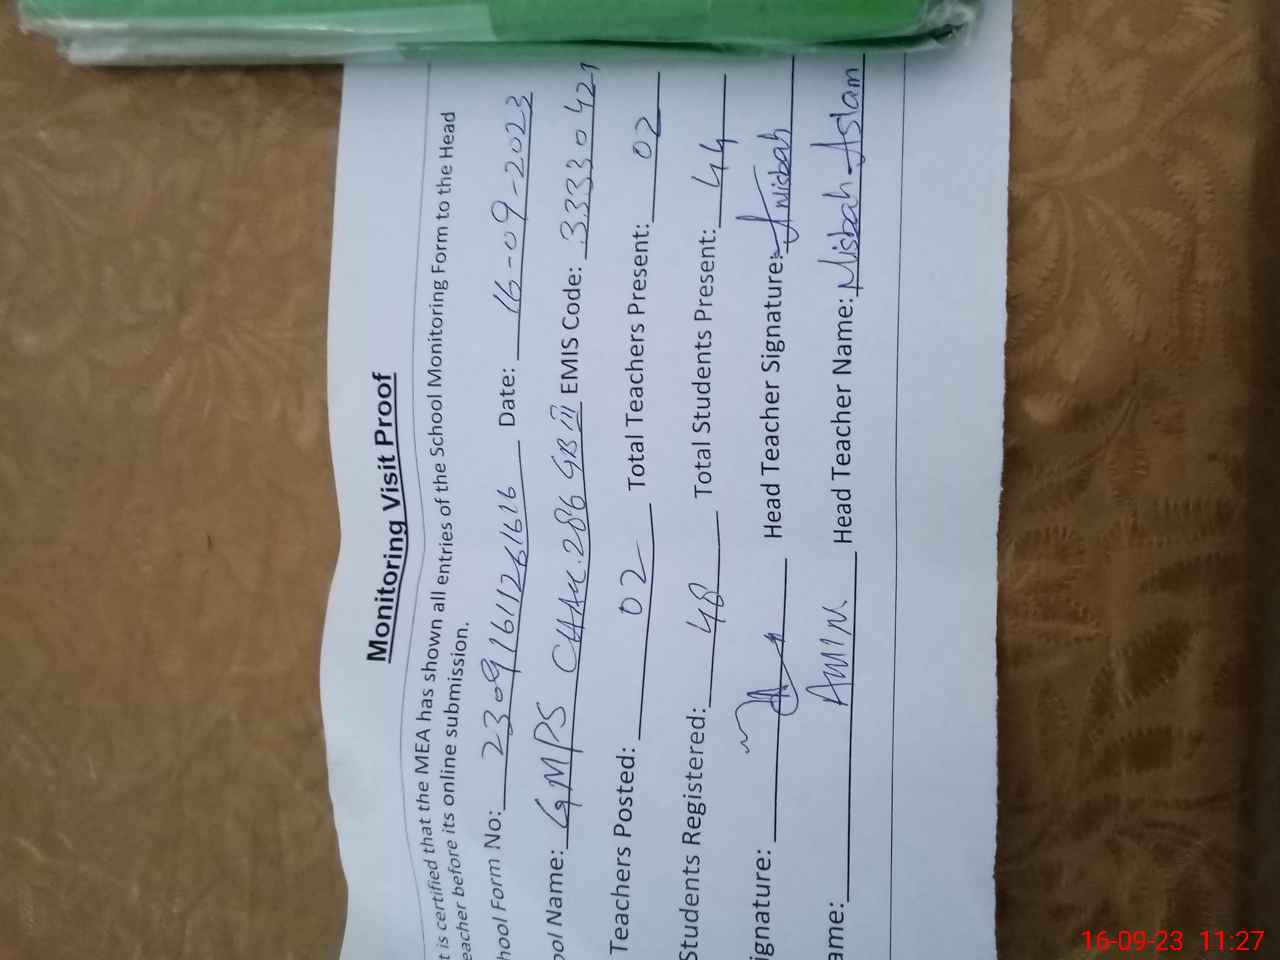 Monitoring Visit Proof
t is certified that the MEA has shown all entries of the School Monitoring Form to the Head
eacher before its online submission.
hool Form No: 23091611261616 Date: 16-09-2023
ool Name: GMPS CHAK.286 GB III EMIS Code: 33330421
Teachers Posted: 02 Total Teachers Present: 02
Students Registered: 48 Total Students Present: 44
ignature: Head Teacher Signature: Misbah
ame: AMIN Head Teacher Name: Misbah Aslam
16-09-23 11:27